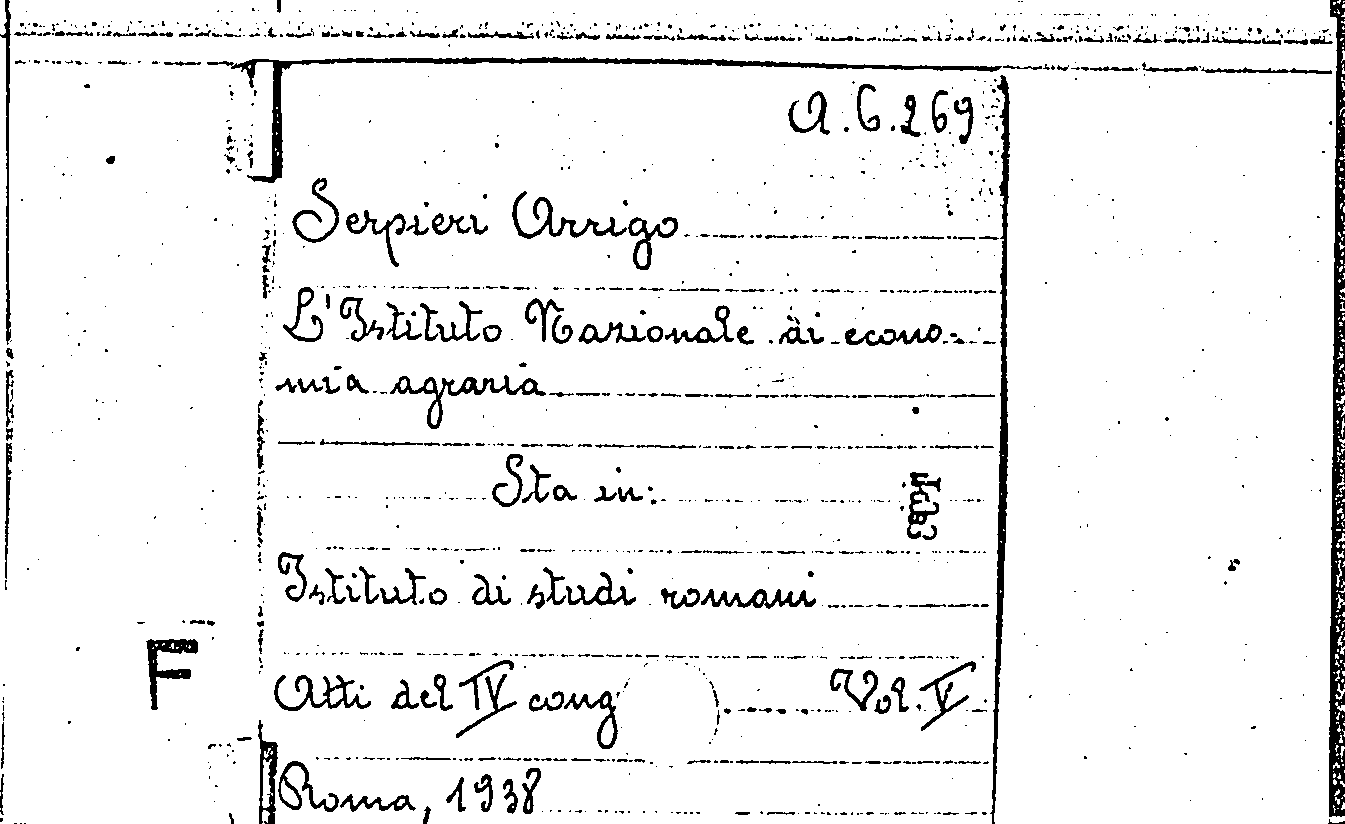 A.6.269
Serpieri Arrigo
L'Istituto Nazionale di econo-
mia agraria
Sta in:
Istituto di studi romani
F
Atti del IV cong Vol. V
Roma, 1938